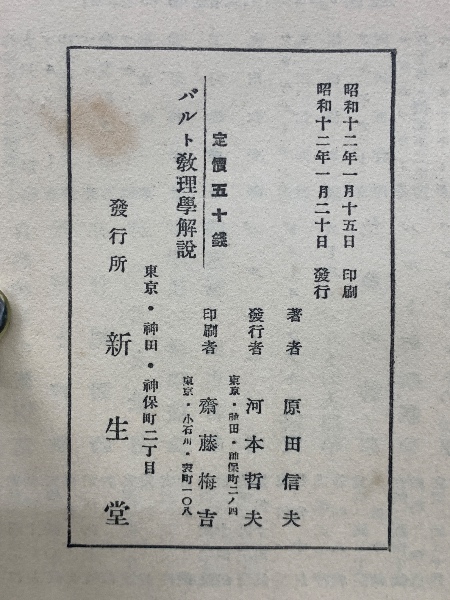 昭和十二年一月十五日 印刷
昭和十二年一月二十日 發行
定價五十錢
バルト教理學解說
著者 原田信夫
發行者 河本哲夫
東京・神田・神保町二ノ四
印刷者 齋藤梅吉
東京・小石川・表町一〇八
東京・神田・神保町二丁目
發行所 新生堂